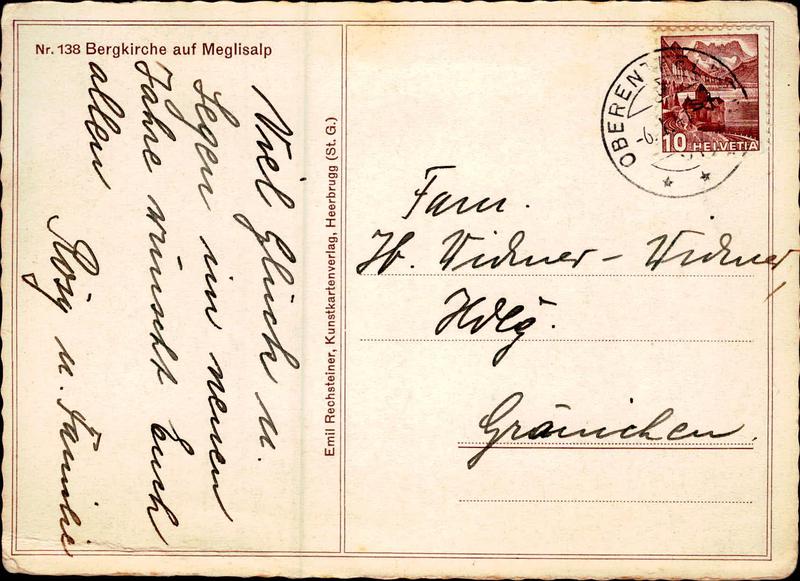 Nr. 138 Bergkirche auf Meglisalp
Viel Glück u.
Segen im neuen
Jahre wünscht Euch
allen
Rösy u. Familie
Emil Rechsteiner, Kunstkartenverlag, Heerbrugg (St. G.)
OBERENT
-6.
10 HELVETIA
Fam.
Hr. Widmer - Widmer,
Hdlg.
Gränichen.